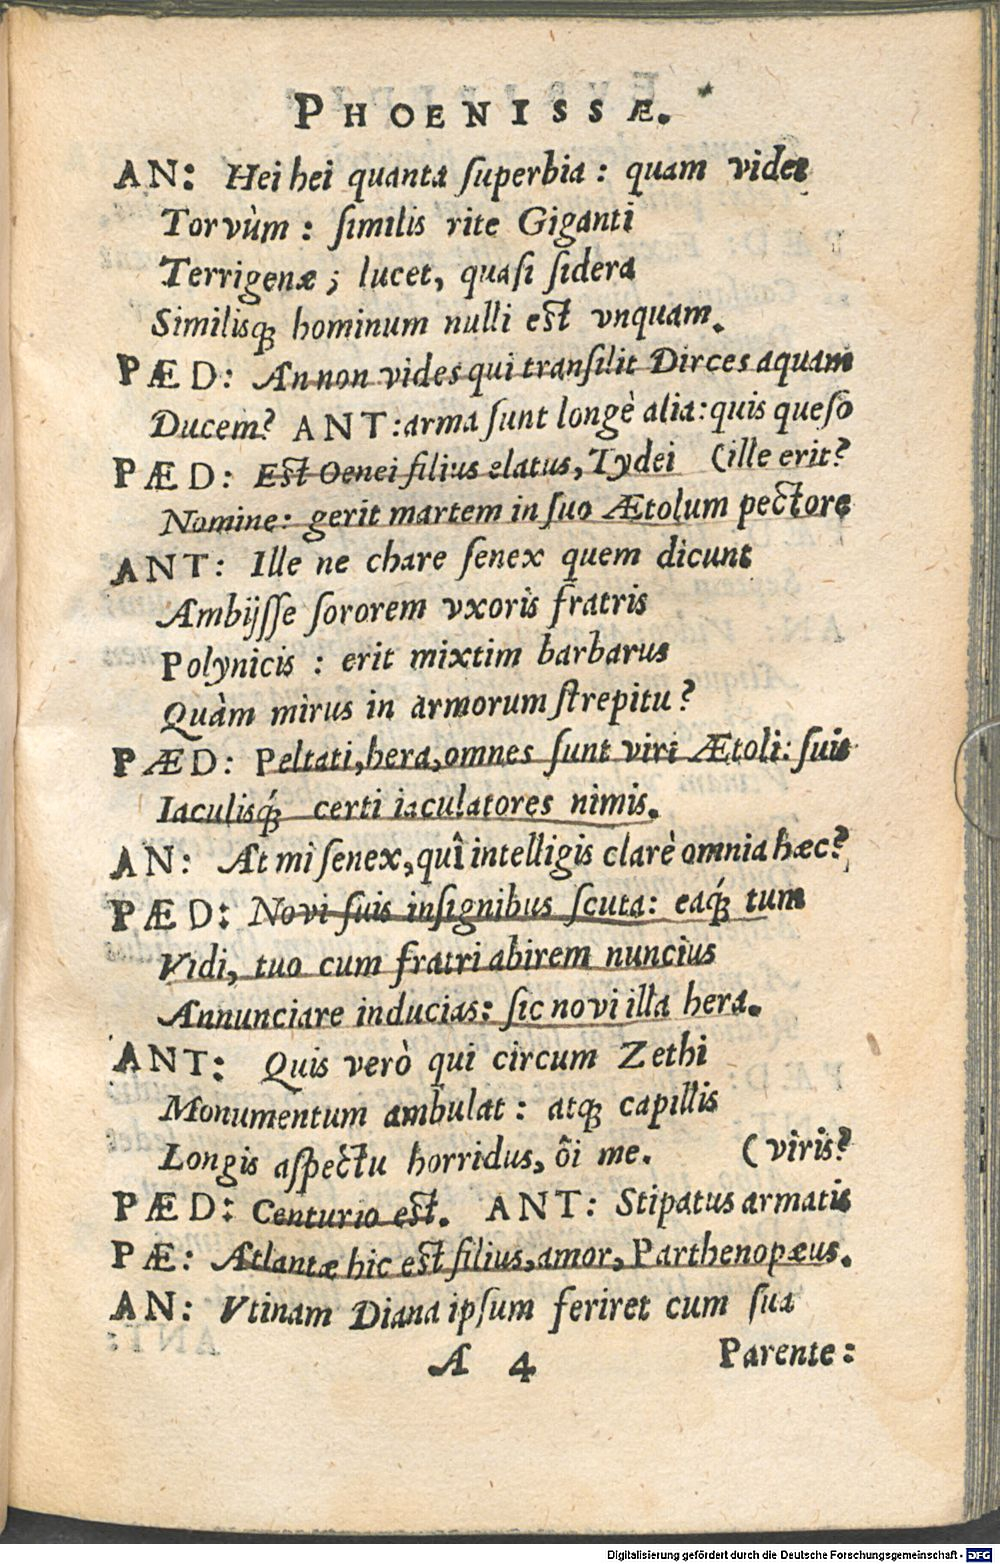 PHOENISSÆ.
AN: Hei hei quanta ſuperbia : quam vides
Torvùm : ſimilis rite Giganti
Terrigenæ ; lucet, quaſi ſidera
Similisq; hominum nulli eſt vnquam.
PÆD: An non vides qui tranſilit Dirces aquam
Ducem? ANT: arma ſunt longè alia: quis queſo
PÆD: Eſt Oenei filius elatus, Tydei (ille erit?
Nomine: gerit martem in ſuo Ætolum pectore
ANT: Ille ne chare ſenex quem dicunt
Ambijſſe ſororem vxoris fratris
Polynicis : erit mixtim barbarus
Quàm mirus in armorum ſtrepitu?
PÆD: Peltati, hera, omnes ſunt viri Ætoli: ſuis
Iaculisq́; certi iaculatores nimis.
AN: At mi ſenex, quî intelligis clarè omnia hæc?
PÆD: Novi ſuis inſignibus ſcuta: eaq́; tum
Vidi, tuo cum fratri abirem nuncius
Annunciare inducias: ſic novi illa hera.
ANT: Quis verò qui circum Zethi
Monumentum ambulat : atq; capillis
Longis aſpectu horridus, ôi me. (viris?
PÆD: Centurio eſt. ANT: Stipatus armatis
PÆ: Atlantæ hic eſt filius, amor, Parthenopæus.
AN: Vtinam Diana ipſum feriret cum ſua
A 4 Parente:
Digitalisierung gefördert durch die Deutsche Forschungsgemeinschaft - DFG